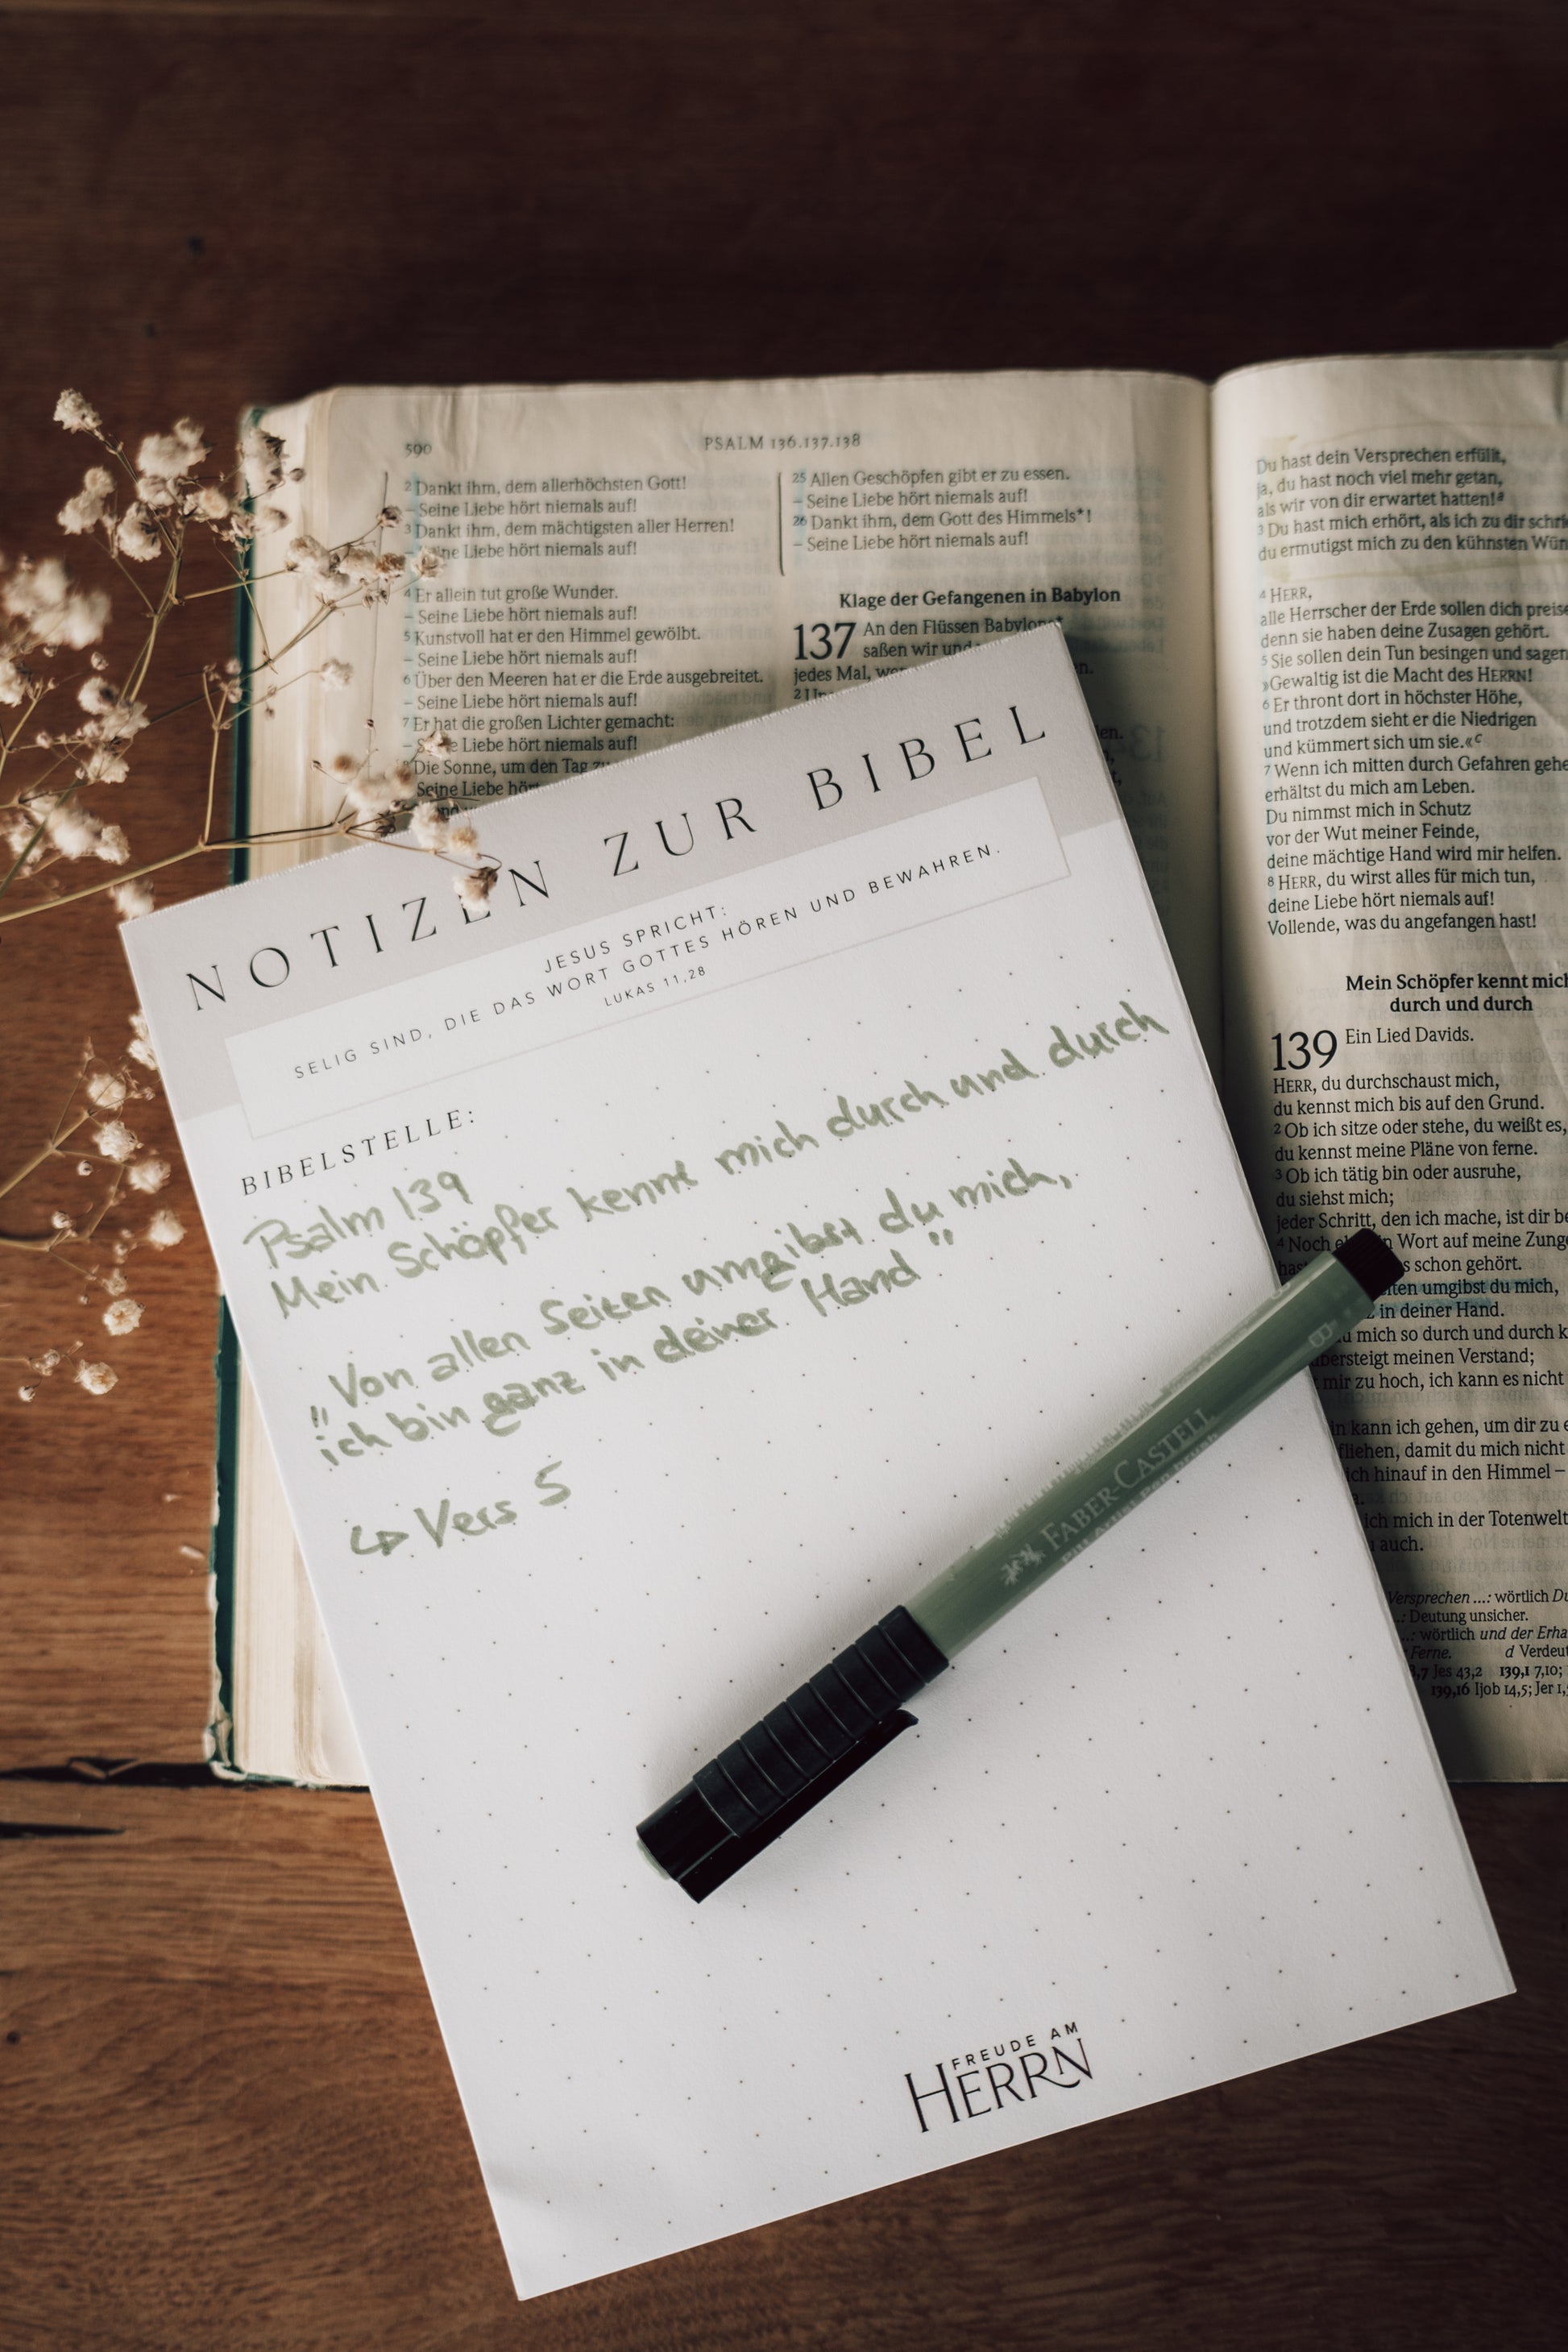 590
PSALM 136.137.138
2 Dankt ihm, dem allerhöchsten Gott!
– Seine Liebe hört niemals auf!
3 Dankt ihm, dem mächtigsten aller Herren!
Liebe hört niemals auf!
4 Er allein tut große Wunder.
– Seine Liebe hört niemals auf!
5 Kunstvoll hat er den Himmel gewölbt.
– Seine Liebe hört niemals auf!
6 Über den Meeren hat er die Erde ausgebreitet.
– Seine Liebe hört niemals auf!
7 Er hat die großen Lichter gemacht:
– Liebe hört niemals auf!
Die Sonne, um den Tag
Seine Liebe
25 Allen Geschöpfen gibt er zu essen.
– Seine Liebe hört niemals auf!
26 Dankt ihm, dem Gott des Himmels*!
– Seine Liebe hört niemals auf!
Klage der Gefangenen in Babylon
137 An den Flüssen Babylons*
saßen wir und
jedes Mal,
2
Du hast dein Versprechen erfüllt,
ja, du hast noch viel mehr getan,
als wir von dir erwartet hatten!a
3 Du hast mich erhört, als ich zu dir
du ermutigst mich zu den kühnsten
4 HERR,
alle Herrscher der Erde sollen dich
denn sie haben deine Zusagen gehört.
5 Sie sollen dein Tun besingen und sagen
»Gewaltig ist die Macht des HERRN!
6 Er thront dort in höchster Höhe,
und trotzdem sieht er die Niedrigen
und kümmert sich um sie.«c
7 Wenn ich mitten durch Gefahren gehe
erhältst du mich am Leben.
Du nimmst mich in Schutz
vor der Wut meiner Feinde,
deine mächtige Hand wird mir helfen.
8 HERR, du wirst alles für mich tun,
deine Liebe hört niemals auf!
Vollende, was du angefangen hast!
Mein Schöpfer kennt mich
durch und durch
139 Ein Lied Davids.
HERR, du durchschaust mich,
du kennst mich bis auf den Grund.
2 Ob ich sitze oder stehe, du weißt es,
du kennst meine Pläne von ferne.
3 Ob ich tätig bin oder ausruhe,
du siehst mich;
jeder Schritt, den ich mache, ist dir
4 Noch Wort auf meine
schon gehört.
umgibst du mich,
in deiner Hand.
mich so durch und durch
übersteigt meinen Verstand;
mir zu hoch, ich kann es nicht
kann ich gehen, um dir zu
fliehen, damit du mich nicht
ich hinauf in den Himmel –
ich mich in der Totenwelt
auch.
Versprechen ...: wörtlich
Deutung unsicher.
wörtlich und der
Ferne. d
Jes 43,2 139,1 7,10;
139,16 Ijob 14,5; Jer
NOTIZEN ZUR BIBEL
JESUS SPRICHT:
SELIG SIND, DIE DAS WORT GOTTES HÖREN UND BEWAHREN.
LUKAS 11,28
BIBELSTELLE:
Psalm 139
Mein Schöpfer kennt mich durch und durch
„Von allen Seiten umgibst du mich,
ich bin ganz in deiner Hand"
↳ Vers 5
FABER-CASTELL
Pitt Artist Pen brush
B
FREUDE AM
HERRN